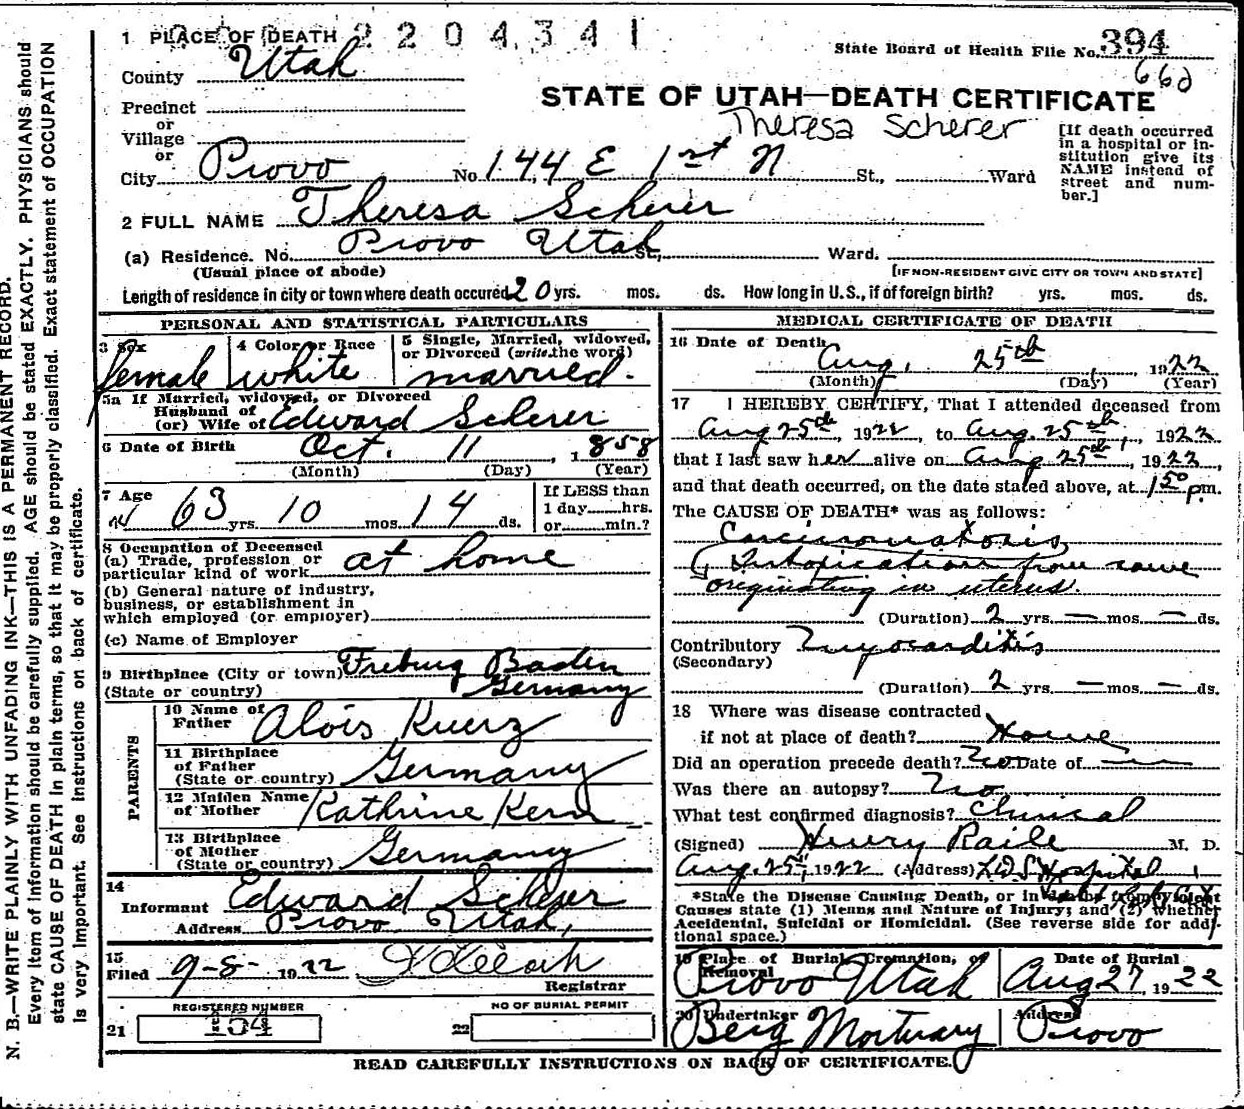 1 PLACE OF DEATH 2 2 0 4 3 4 1
State Board of Health File No. 394
County Utah
660
STATE OF UTAH—DEATH CERTIFICATE
Theresa Scherer
Precinct
or
Village
or
City Provo No. 144 E 1st N St., Ward
[If death occurred in a hospital or institution give its NAME instead of street and number.]
2 FULL NAME Theresa Scherer
(a) Residence. No. Provo Utah St., Ward.
(Usual place of abode) [IF NON-RESIDENT GIVE CITY OR TOWN AND STATE]
Length of residence in city or town where death occured 20 yrs. mos. ds. How long in U.S., if of foreign birth? yrs. mos. ds.
PERSONAL AND STATISTICAL PARTICULARS
3 Sex 4 Color or Race 5 Single, Married, widowed,
or Divorced (write the word)
female white married.
5a If Married, widowed, or Divorced
Husband of
(or) Wife of Edward Scherer
6 Date of Birth Oct. 11, 1858
(Month) (Day) (Year)
7 Age 63 yrs. 10 mos. 14 ds.
If LESS than
1 day hrs.
or min.?
8 Occupation of Deceased
(a) Trade, profession or
particular kind of work at home
(b) General nature of industry,
business, or establishment in
which employed (or employer)
(c) Name of Employer
9 Birthplace (City or town) Freiburg Baden
(State or country) Germany
PARENTS
10 Name of
Father Alois Kuerz
11 Birthplace
of Father
(State or country) Germany
12 Maiden Name
of Mother Kathrine Kern
13 Birthplace
of Mother
(State or country) Germany
14
Informant Edward Scherer
Address Provo Utah,
15
Filed 9-8- 1922
Registrar
REGISTERED NUMBER
21 154
NO OF BURIAL PERMIT
22
MEDICAL CERTIFICATE OF DEATH
16 Date of Death
Aug. 25th, 1922
(Month) (Day) (Year)
17 I HEREBY CERTIFY, That I attended deceased from
Aug 25th, 1922 to Aug. 25th, 1922
that I last saw her alive on Aug 25th, 1922,
and that death occurred, on the date stated above, at 1 50 p.m.
The CAUSE OF DEATH* was as follows:
Carcinomatosis
(Intoxication from same
originating in uterus.
(Duration) 2 yrs. — mos. — ds.
Contributory Myocarditis
(Secondary)
(Duration) 2 yrs. — mos. — ds.
18 Where was disease contracted
if not at place of death? Home
Did an operation precede death? No Date of —
Was there an autopsy? No
What test confirmed diagnosis? Clinical
(Signed) Henry Raile M. D.
Aug. 25th, 1922 (Address) L.D.S Hospital
*State the Disease Causing Death, or in deaths from Violent
Causes state (1) Means and Nature of Injury; and (2) whether
Accidental, Suicidal or Homicidal. (See reverse side for addi-
tional space.)
19 Place of Burial Cremation, or
Removal
Date of Burial
Provo Utah Aug 27, 1922
20 Undertaker Address
Berg Mortuary Provo
READ CAREFULLY INSTRUCTIONS ON BACK OF CERTIFICATE.
N. B.—WRITE PLAINLY WITH UNFADING INK—THIS IS A PERMANENT RECORD.
Every item of information should be carefully supplied. AGE should be stated EXACTLY. PHYSICIANS should
state CAUSE OF DEATH in plain terms, so that it may be properly classified. Exact statement of OCCUPATION
is very important. See instructions on back of certificate.